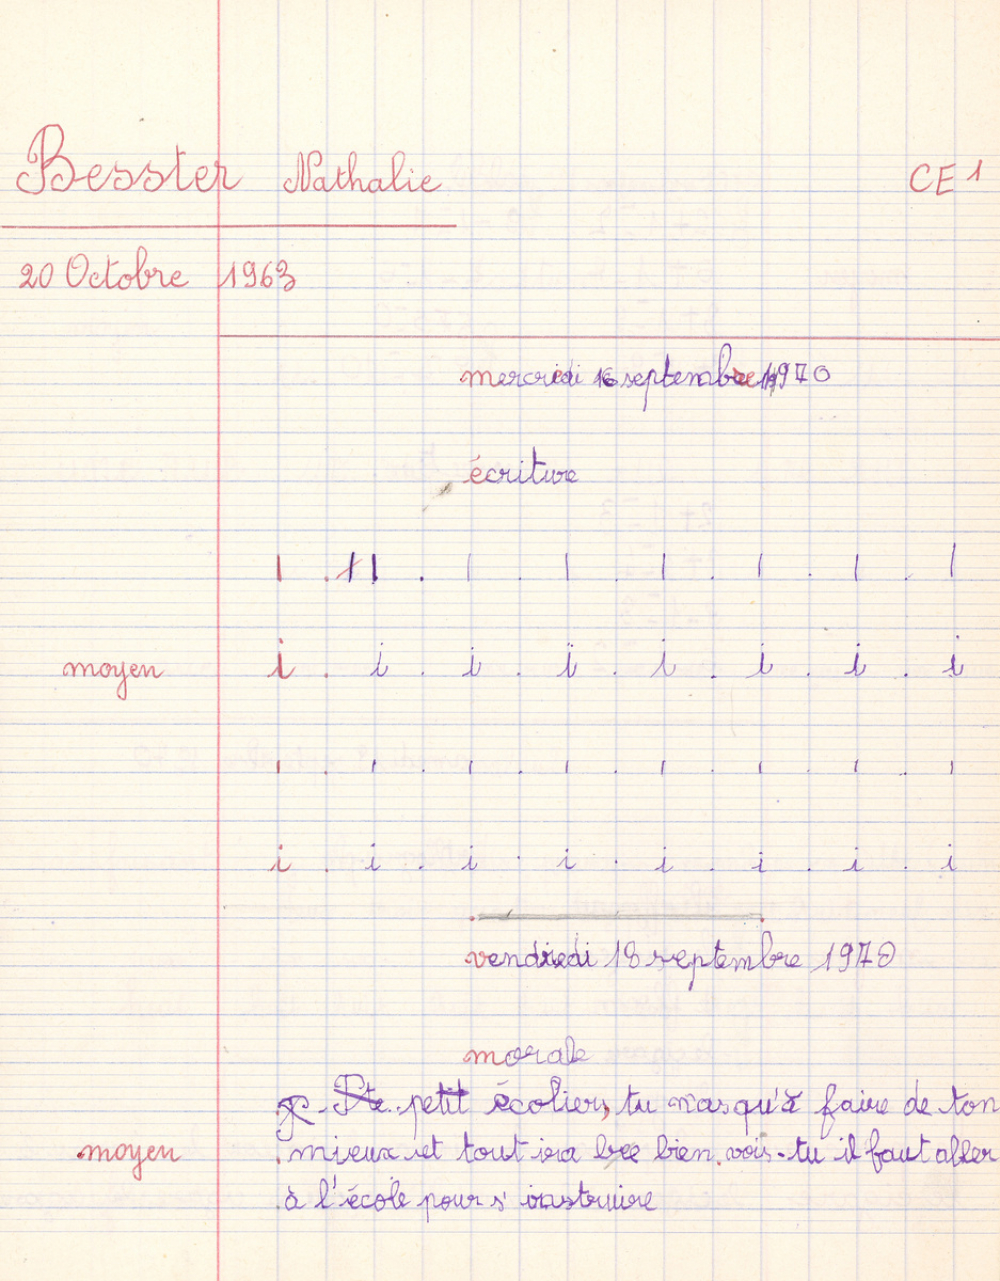 Besster Nathalie CE 1
20 Octobre 1963
mercredi 16 septembre 1970
écriture
ı . ı ı . ı . ı . ı . ı . ı . ı
moyen i . i . i . i . i . i . i . i
ı . ı . ı . ı . ı . ı . ı . ı
i . i . i . i . i . i . i . i
vendredi 18 septembre 1970
morale
petit écolier, tu n'as qu'à faire de ton
moyen mieux et tout ira bien. vois-tu il faut aller
à l'école pour s'instruire